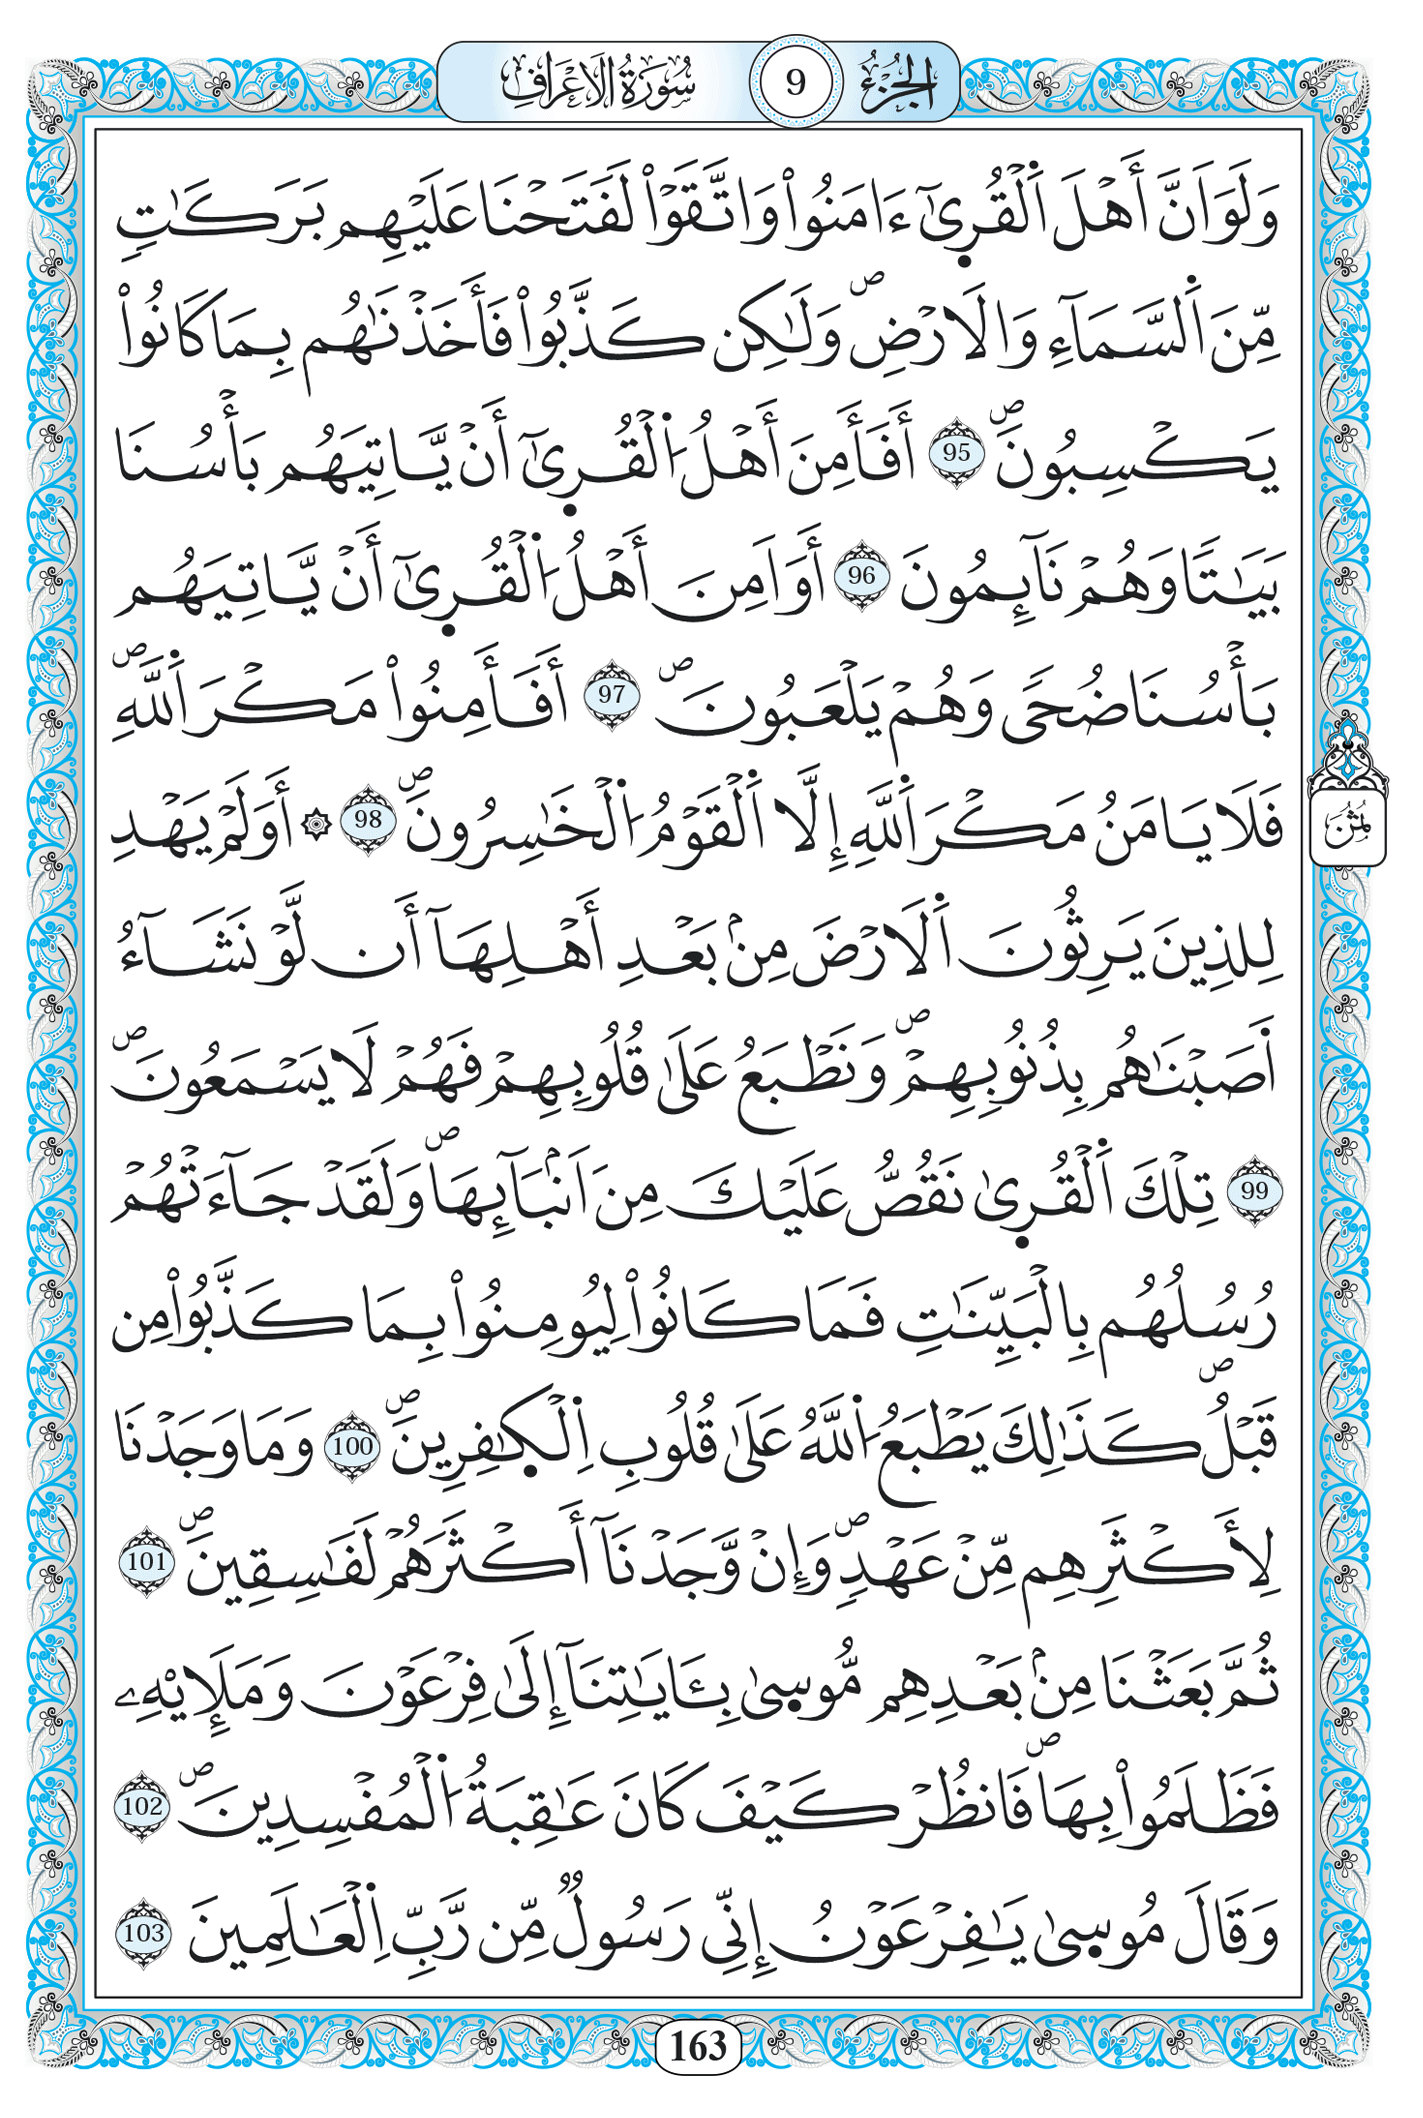 سُورَةُ الَاعْرَافِ 9 الجُزْءُ
وَلَوَ اَنَّ أَهْلَ اَ۬لْقُر۪ىٰٓ ءَامَنُواْ وَاتَّقَوْاْ لَفَتَحْنَا عَلَيْهِم بَرَكَٰتٖ
مِّنَ اَ۬لسَّمَآءِ وَالَارْضِۖ وَلَٰكِن كَذَّبُواْ فَأَخَذْنَٰهُم بِمَا كَانُواْ
يَكْسِبُونَۖ 95 أَفَأَمِنَ أَهْلُ اُ۬لْقُر۪ىٰٓ أَنْ يَّاتِيَهُم بَأْسُنَا
بَيَٰتاٗ وَهُمْ نَآئِمُونَ 96 أَوَ اَمِنَ أَهْلُ اُ۬لْقُر۪ىٰٓ أَنْ يَّاتِيَهُم
بَأْسُنَا ضُحيٗ وَهُمْ يَلْعَبُونَۖ 97 أَفَأَمِنُواْ مَكْرَ اَ۬للَّهِۖ
فَلَا يَامَنُ مَكْرَ اَ۬للَّهِ إِلَّا اَ۬لْقَوْمُ اُ۬لْخَٰسِرُونَۖ 98 ۞ أَوَلَمْ يَهْدِ
لِلذِينَ يَرِثُونَ اَ۬لَارْضَ مِنۢ بَعْدِ أَهْلِهَآ أَن لَّوْ نَشَآءُ
أَصَبْنَٰهُم بِذُنُوبِهِمْۖ وَنَطْبَعُ عَلَىٰ قُلُوبِهِمْ فَهُمْ لَا يَسْمَعُونَۖ
99 تِلْكَ اَ۬لْقُر۪ىٰ نَقُصُّ عَلَيْكَ مِنَ اَنۢبَآئِهَاۖ وَلَقَدْ جَآءَتْهُمْ
رُسُلُهُم بِالْبَيِّنَٰتِ فَمَا كَانُواْ لِيُومِنُواْ بِمَا كَذَّبُواْ مِن
قَبْلُۖ كَذَٰلِكَ يَطْبَعُ اُ۬للَّهُ عَلَىٰ قُلُوبِ اِ۬لْكٰ۪فِرِينَۖ 100 وَمَا وَجَدْنَا
لِأَكْثَرِهِم مِّنْ عَهْدٖۖ وَإِنْ وَّجَدْنَآ أَكْثَرَهُمْ لَفَٰسِقِينَۖ 101
ثُمَّ بَعَثْنَا مِنۢ بَعْدِهِم مُّوس۪ىٰ بِـَٔايَٰتِنَآ إِلَىٰ فِرْعَوْنَ وَمَلَإِيْهِۦ
فَظَلَمُواْ بِهَاۖ فَانظُرْ كَيْفَ كَانَ عَٰقِبَةُ اُ۬لْمُفْسِدِينَۖ 102
وَقَالَ مُوس۪ىٰ يَٰفِرْعَوْنُ إِنِّي رَسُولٞ مِّن رَّبِّ اِ۬لْعَٰلَمِينَ 103
ثُمُن
163